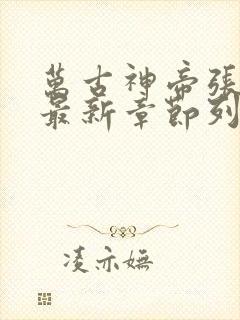 萬古神帝張
最新章節列
凌亦嫵